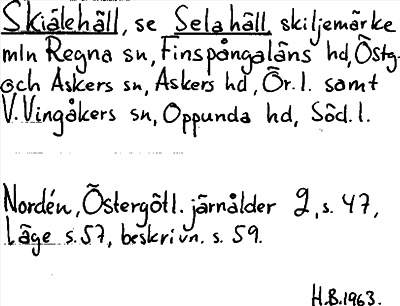 Skiälehäll, se Sela häll skiljemärke
mln Regna sn, Finspångaläns hd, Östg.
och Askers sn, Askers hd, Ör. l. samt
V. Vingåkers sn, Oppunda hd, Söd. l.
Nordén, Östergötl. järnålder 2, s. 47,
Läge s. 57, beskrivn. s. 59.
H.B. 1963.